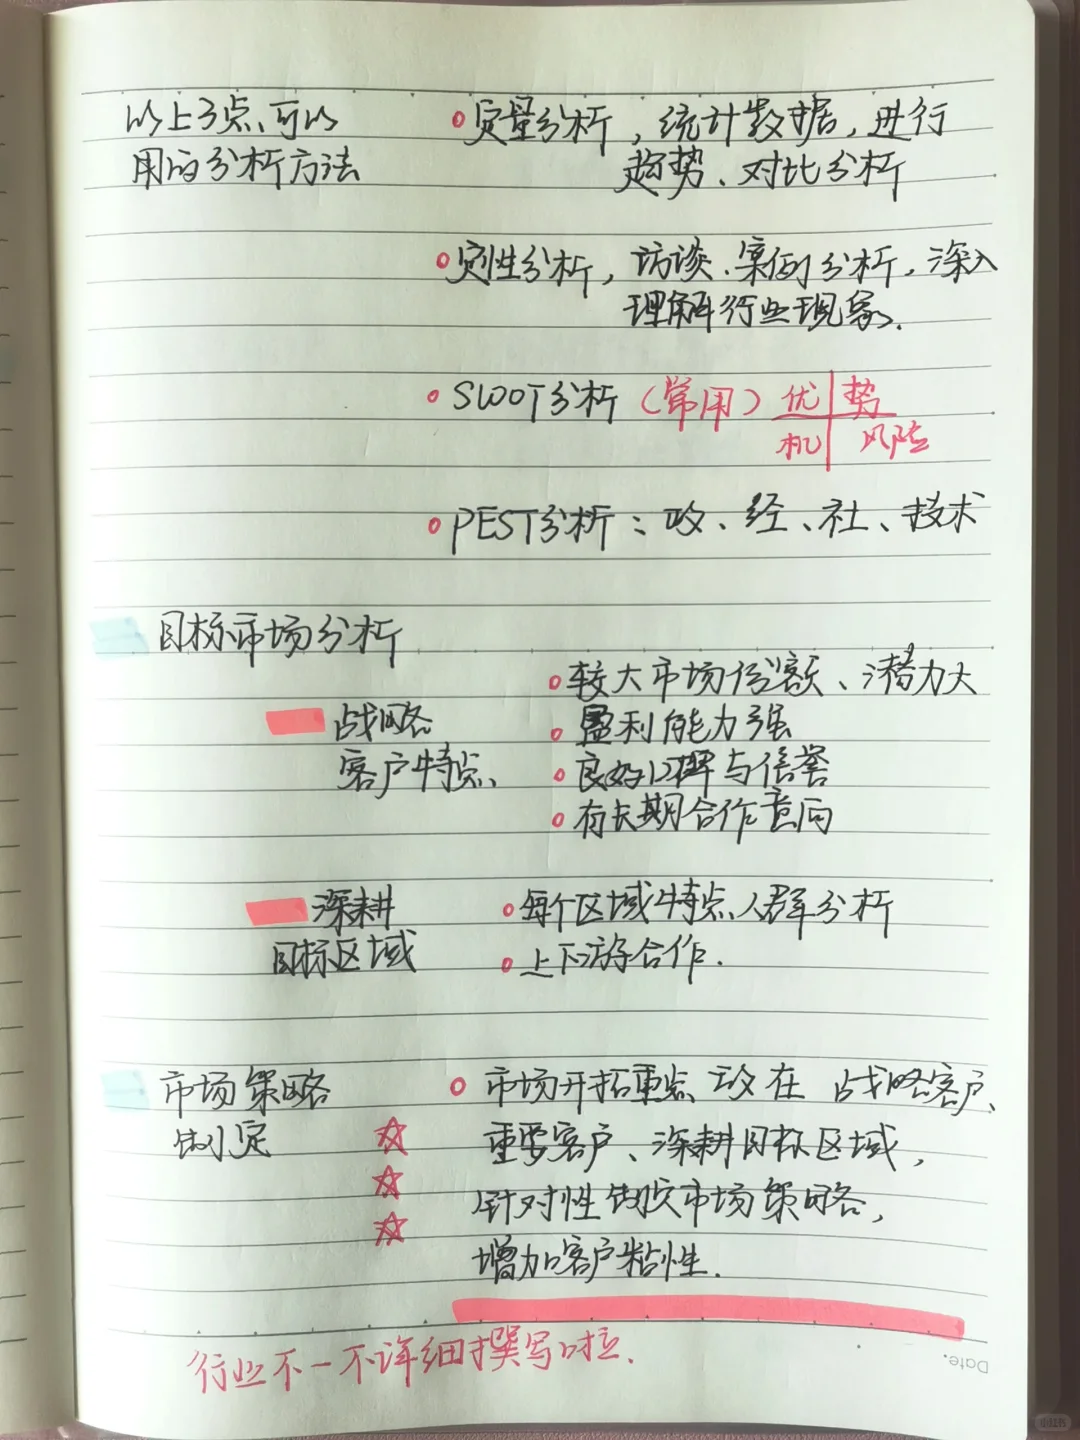 以上3点、可以
用的分析方法
定量分析，统计数据，进行
趋势、对比分析
定性分析，访谈、案例分析，深入
理解行业现象.
SWOT分析（常用）优 势
机 风险
PEST分析：政、经、社、技术
目标市场分析
战略
客户特点、
较大市场份额、潜力大
盈利能力强
良好口碑与信誉
有长期合作意向
深耕
目标区域
每个区域特点、人群分析
上下游合作.
市场策略
制定
市场开拓重点、放在 战略客户、
重要客户、深耕目标区域，
针对性制定市场策略，
增加客户粘性.
行业不一不详细撰写啦.
Date.
小红书